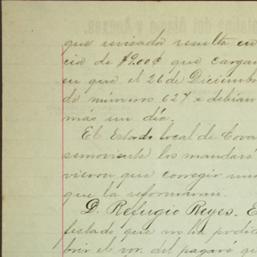 que revisada resulta en
cia de $2.00 que cargan
en que el 26 de Diciembre
de número 627 e debían
más un día.
El Estado local de Cova
semoviente los mandara
vieron que corregir un
que la reformaran.
D. Refugio Reyes. E
festado que no ha podid
brir el vr. del pagaré qu